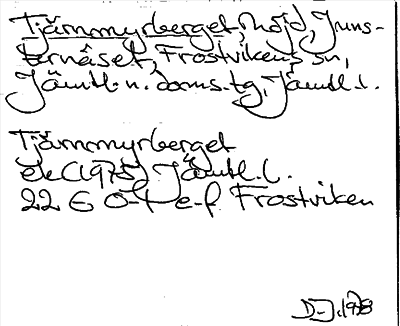 Tjärnmyrberget, höjd, Juns-
ternåset, Frostvikens sn,
Jämtl. n. doms.tg, Jämtl. l.
Tjärnmyrberget
ek (1975) Jämtl. l.
22 E 0-1 e-f Frostviken
D-J. 1978